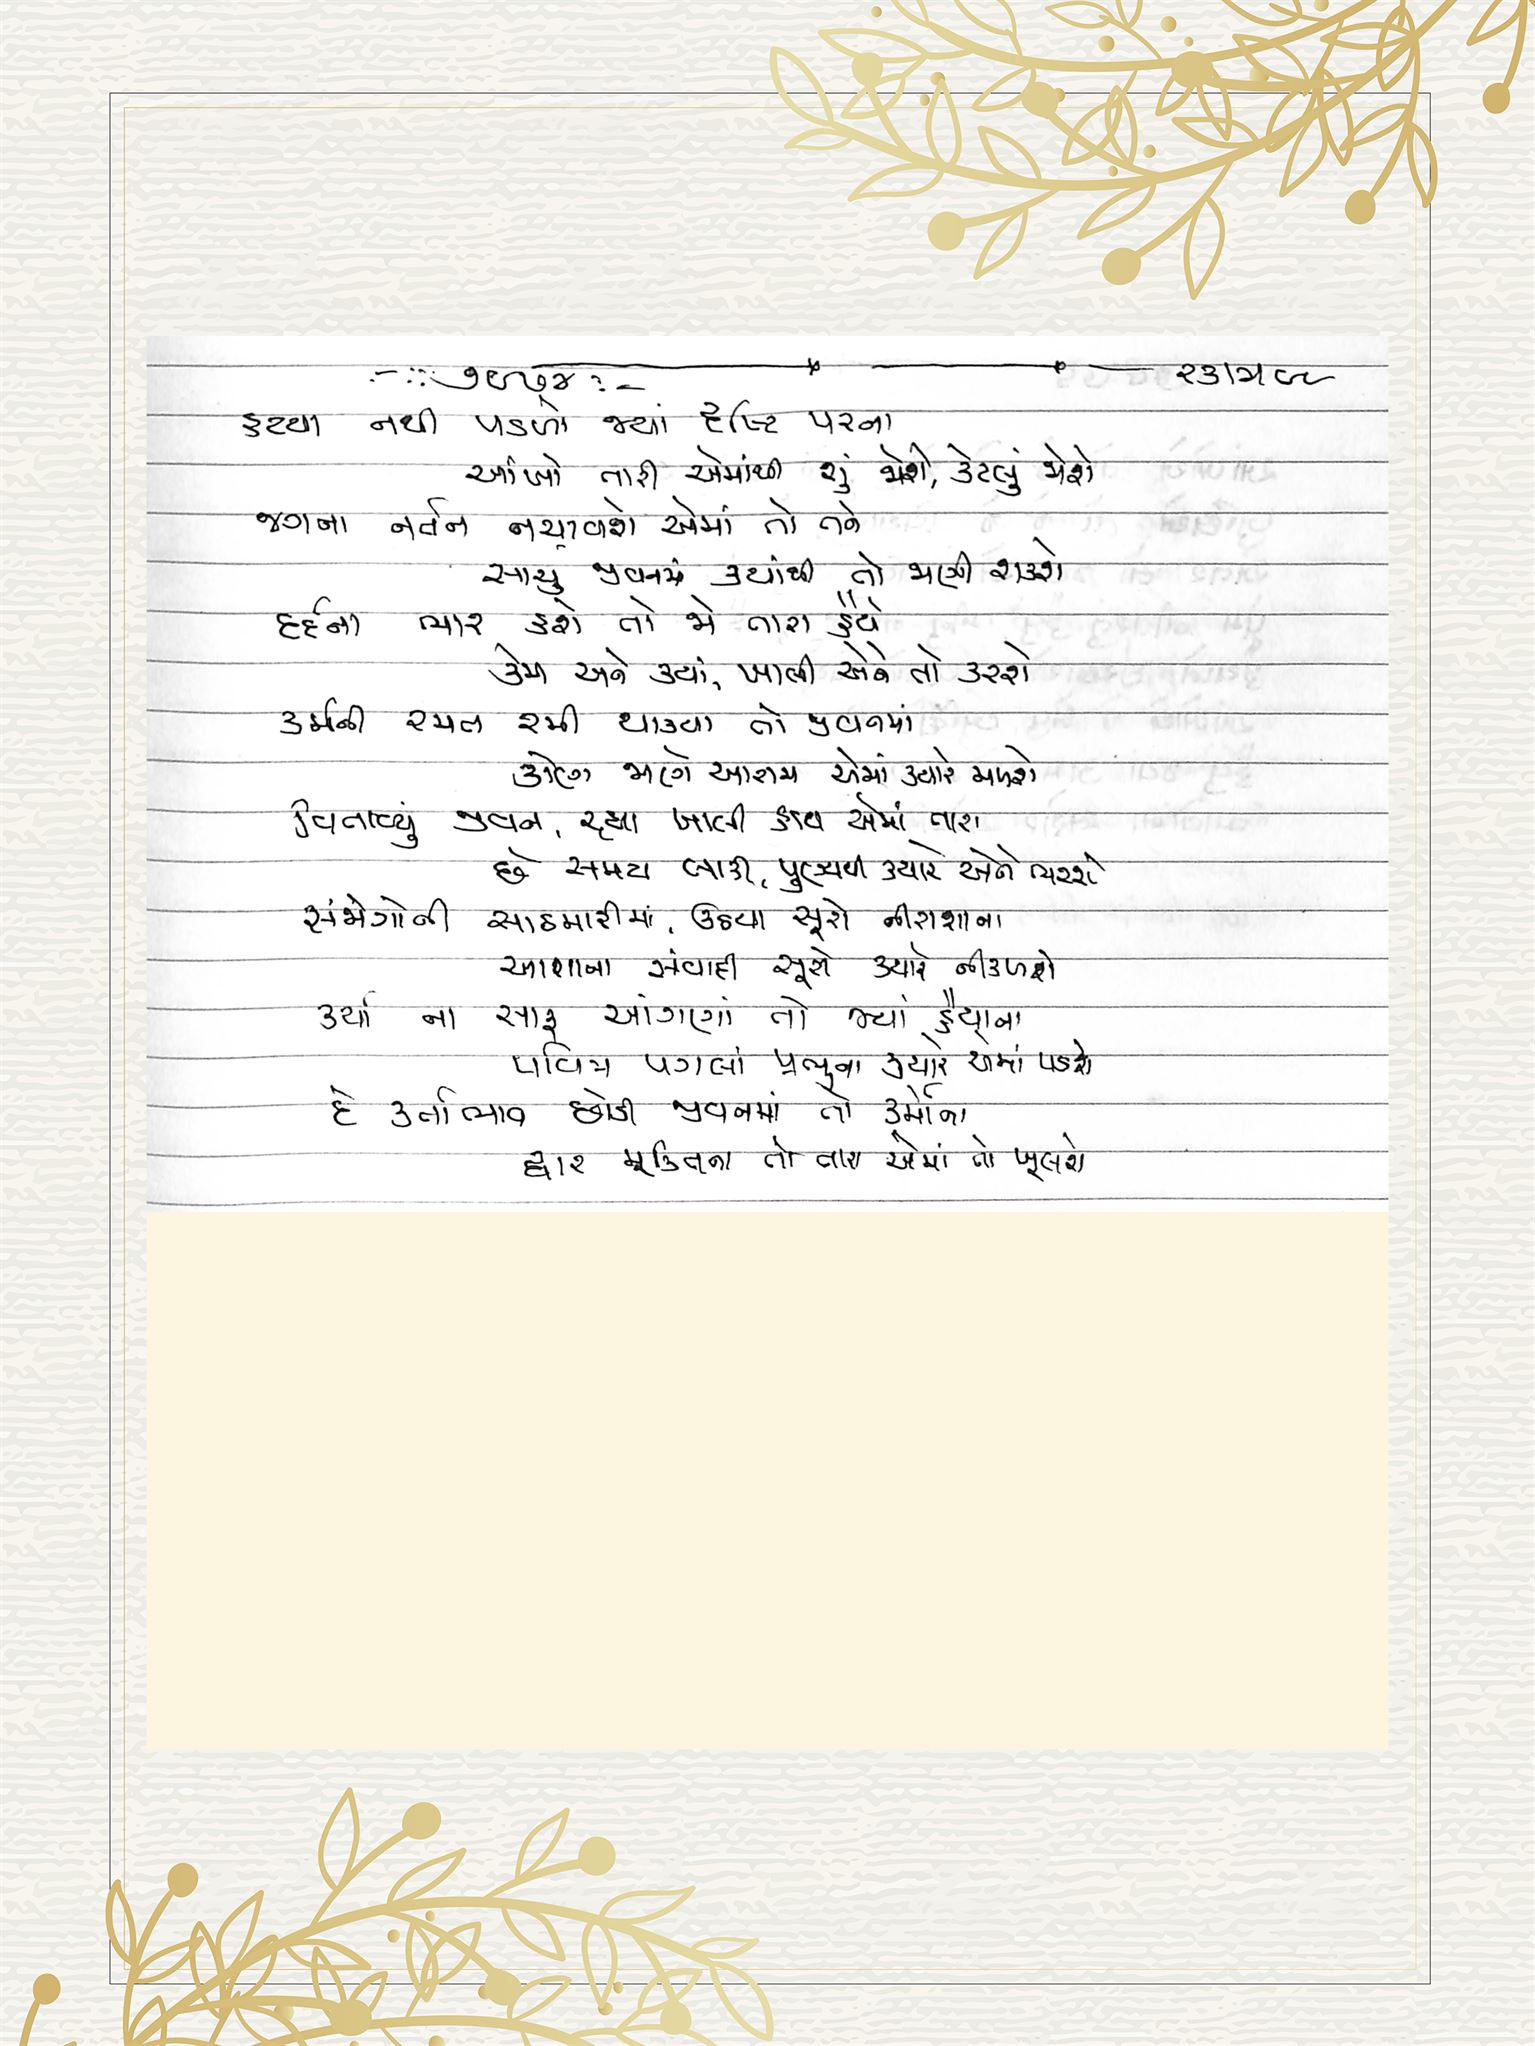 હટયા નથી પડળો જ્યાં દૃષ્ટિ પરના
આંખો તારી એમાંથી શું જોશે, કેટલું જોશે
જગના નર્તન નચાવશે એમાં તો તને
સાચું જીવનમાં ક્યાંથી તો જાણી શકશે
દર્દના ભાર હશે તો જો તારા હૈયે
કેમ અને ક્યાં, ખાલી એને તો કરશે
કર્મની રમત રમી થાક્યા તો જીવનમાં
કોણ જાણે આરામ એમાં ક્યારે મળશે
વિતાવ્યું જીવન, રહ્યા ખાલી હાથ એમાં તારા
છે સમય બાકી, પુણ્યથી ક્યારે એને ભરશે
સંજોગોની સાઠમારીમાં, ઉઠયા સૂરો નીરાશાના
આશાના સંવાદી સૂરો ક્યારે નીકળશે
કર્યા ના સાફ આંગણાં તો જ્યાં હૈયાના
પવિત્ર પગલાં પ્રભુના ક્યારે એમાં પડશે
દે કર્તાભાવ છોડી જીવનમાં તો કર્મોના
દ્વાર મૂક્તિના તો તારા એમાં તો ખૂલશે